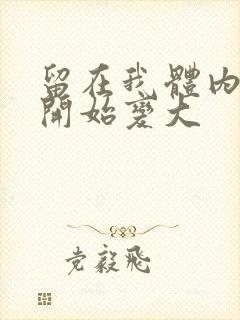 留在我體內
開始變大
党毅飛